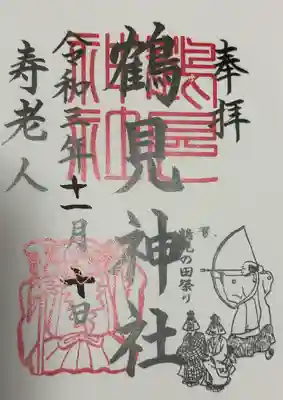 奉拝
鶴見神社
令和三年十一月十日
寿老人
鶴見の田祭り